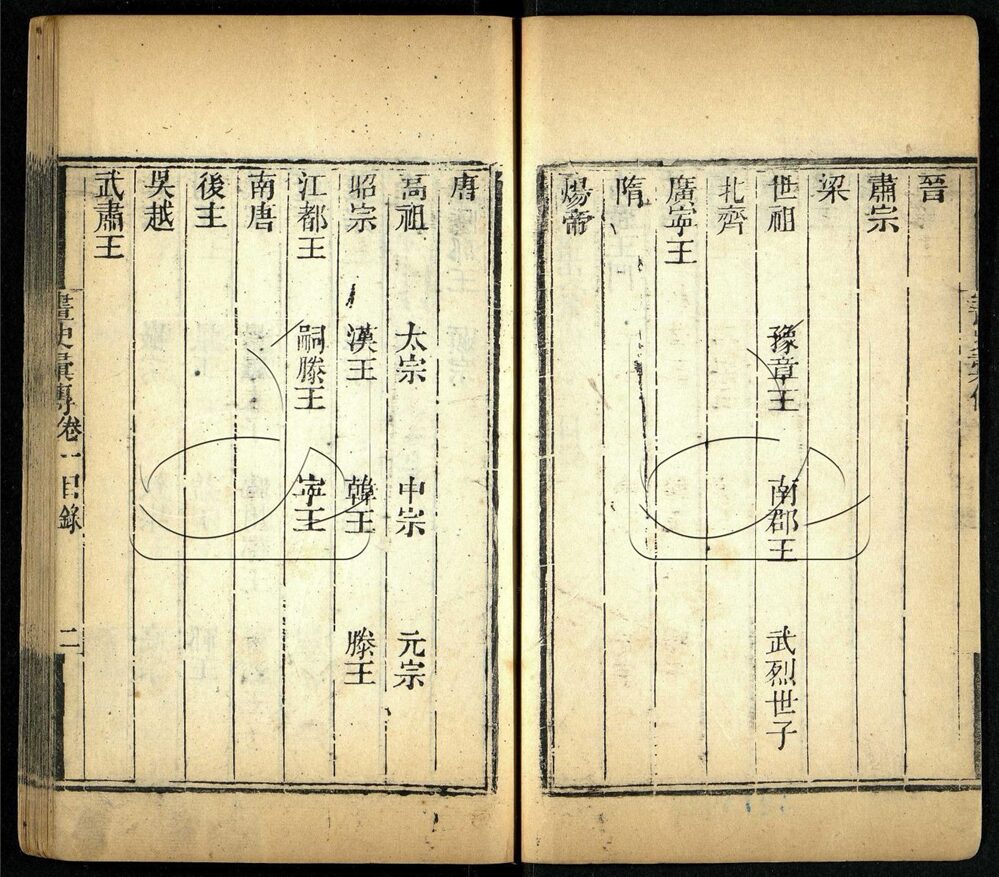 晉
肅宗
梁
世祖 豫章王 南郡王 武烈世子
北齊
廣寧王
隋
煬帝
唐
高祖 太宗 中宗 元宗
昭宗 漢王 韓王 滕王
江都王 嗣滕王 寧王
南唐
後主
吳越
武肅王
畫史彙傳卷一目錄 二